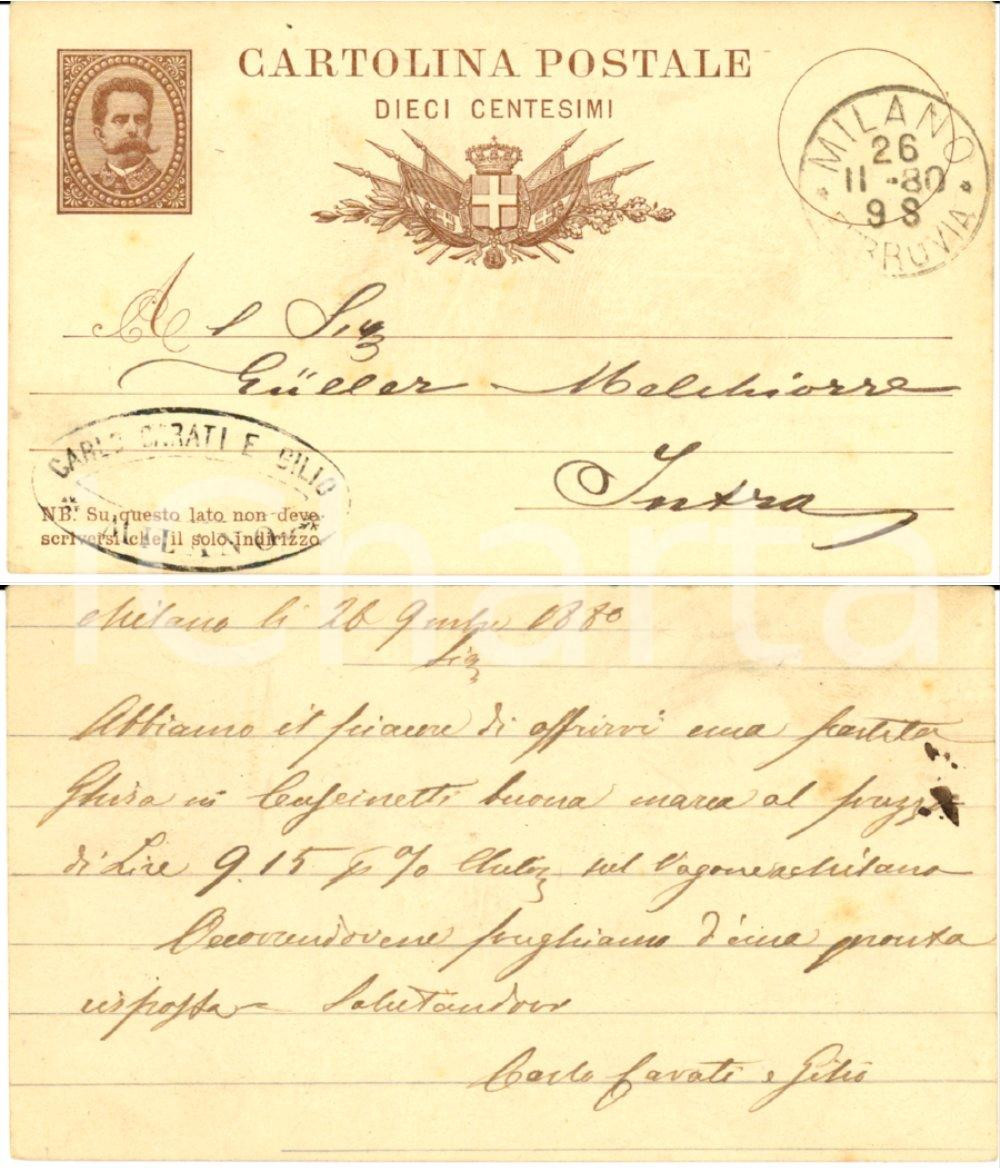 CARTOLINA POSTALE
DIECI CENTESIMI
MILANO
26
11-80
9 S
FERROVIA
Al Sig
Güller Melchiorre
Intra
CARLO CARATI E GILIO
MILANO
NB. Su questo lato non deve
scriversi che il solo indirizzo
Milano li 26 9mbre 1880
Sig
Abbiamo il piacere di offrirvi una partita
Ghisa in buona marca al prezzo
di Lire 9.15 % sul Vagone Milano
Occorrendovene preghiamo d'una pronta
risposta Salutandovi
Carlo Carati e Gilio